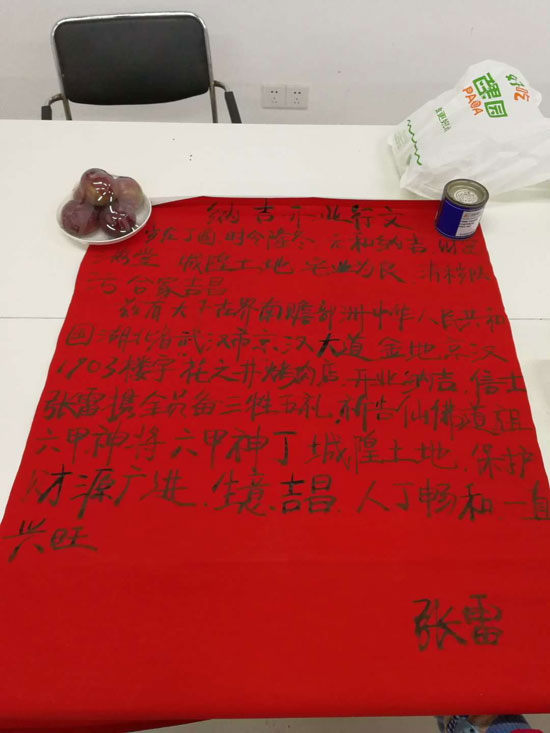 纳吉开业行文
岁在丁酉.时令隆冬 元和纳吉.财运
满堂 城隍土地 宅业为民 消
合家吉昌
兹有天下世界的赡部洲中华人民共和
国湖北省武汉市京汉大道金地京汉
1903楼宇花之井烤肉店.开业纳吉.信士
张雷携全员备三牲五礼.祈告仙佛道祖
六甲神将六甲神丁城隍土地.保护
财源广进.生意吉昌.人丁畅和一直
兴旺
张雷
PAGODA